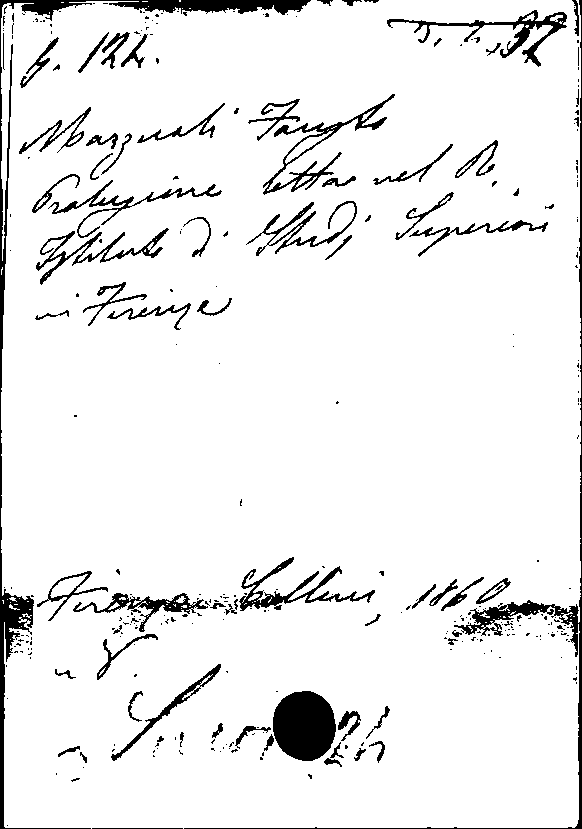 5. 2. 37
G. 124.
Mazzuoli Fausto
Prolusione letta nel R.
Istituto di Studi Superiori
in Firenze
Firenze Cellini, 1860
in 8
24